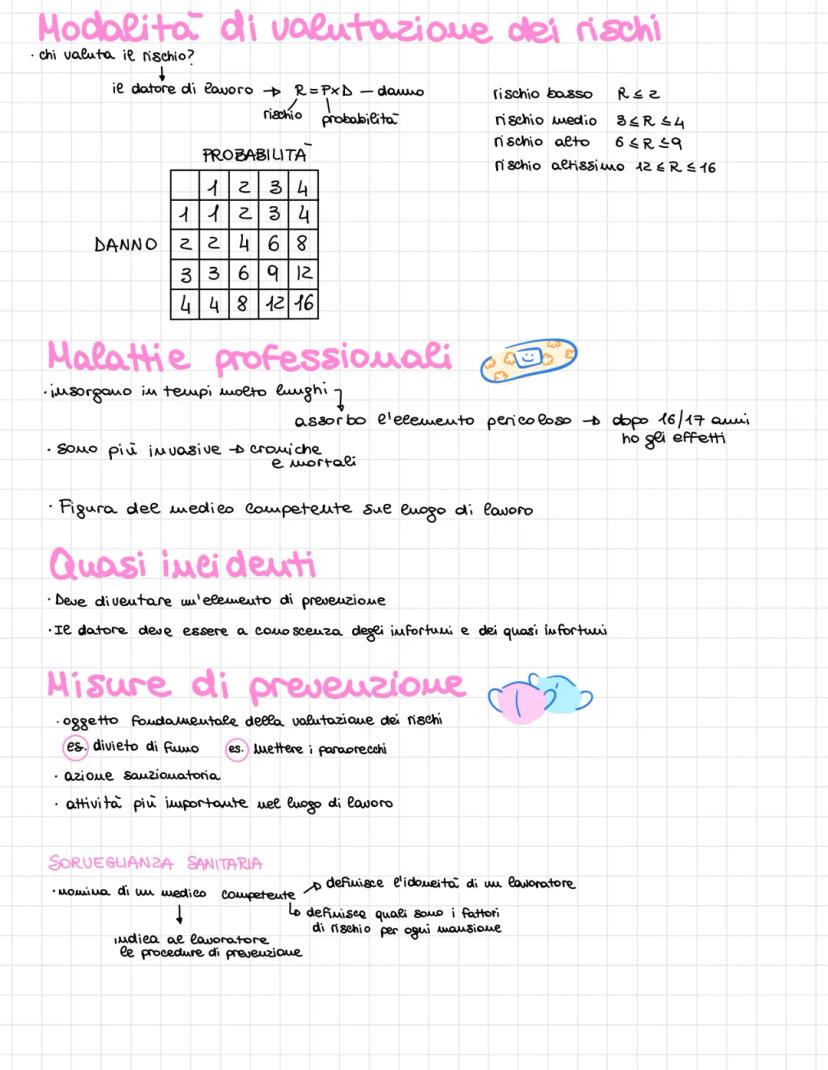 Modalità di valutazione dei rischi
· chi valuta il rischio?
il datore di lavoro → R = P×D — danno
rischio probabilità
rischio basso R ≤ 2
rischio medio 3 ≤ R ≤ 4
rischio alto 6 ≤ R ≤ 9
rischio altissimo 12 ≤ R ≤ 16
PROBABILITÀ
1 2 3 4
1 1 2 3 4
DANNO 2 2 4 6 8
3 3 6 9 12
4 4 8 12 16
Malattie professionali
· insorgono in tempi molto lunghi
assorbo l'elemento pericoloso → dopo 16/17 anni
ho gli effetti
· sono più invasive → croniche
e mortali
· Figura del medico competente sul luogo di lavoro
Quasi incidenti
· Deve diventare un'elemento di prevenzione
· Il datore deve essere a conoscenza degli infortuni e dei quasi infortuni
Misure di prevenzione
· oggetto fondamentale della valutazione dei rischi
es. divieto di fumo es. mettere i paraorecchi
· azione sanzionatoria
· attività più importante nel luogo di lavoro
SORVEGLIANZA SANITARIA
· nomina di un medico competente → definisce l'idoneità di un lavoratore
↳ definisce quali sono i fattori
di rischio per ogni mansione
indica al lavoratore
le procedure di prevenzione